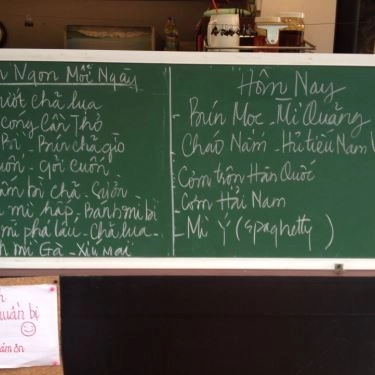 Ngon Mỗi Ngày
chả lụa
Cần Thơ
Bì - Bún chả giò
Gỏi cuốn
bì chả - Sườn
mì hấp, Bánh mì bì
mì phá lấu - Chả lụa -
mì Gà - Xíu mại
Hôm Nay
- Bún Moc - Mì Quảng
Cháo Nấm - Hủ tiếu Nam V
Cơm trộn Hàn Quốc
Cơm Hải Nam
- Mì Ý (Spaghetty)
uẩn bị
ảm ơn